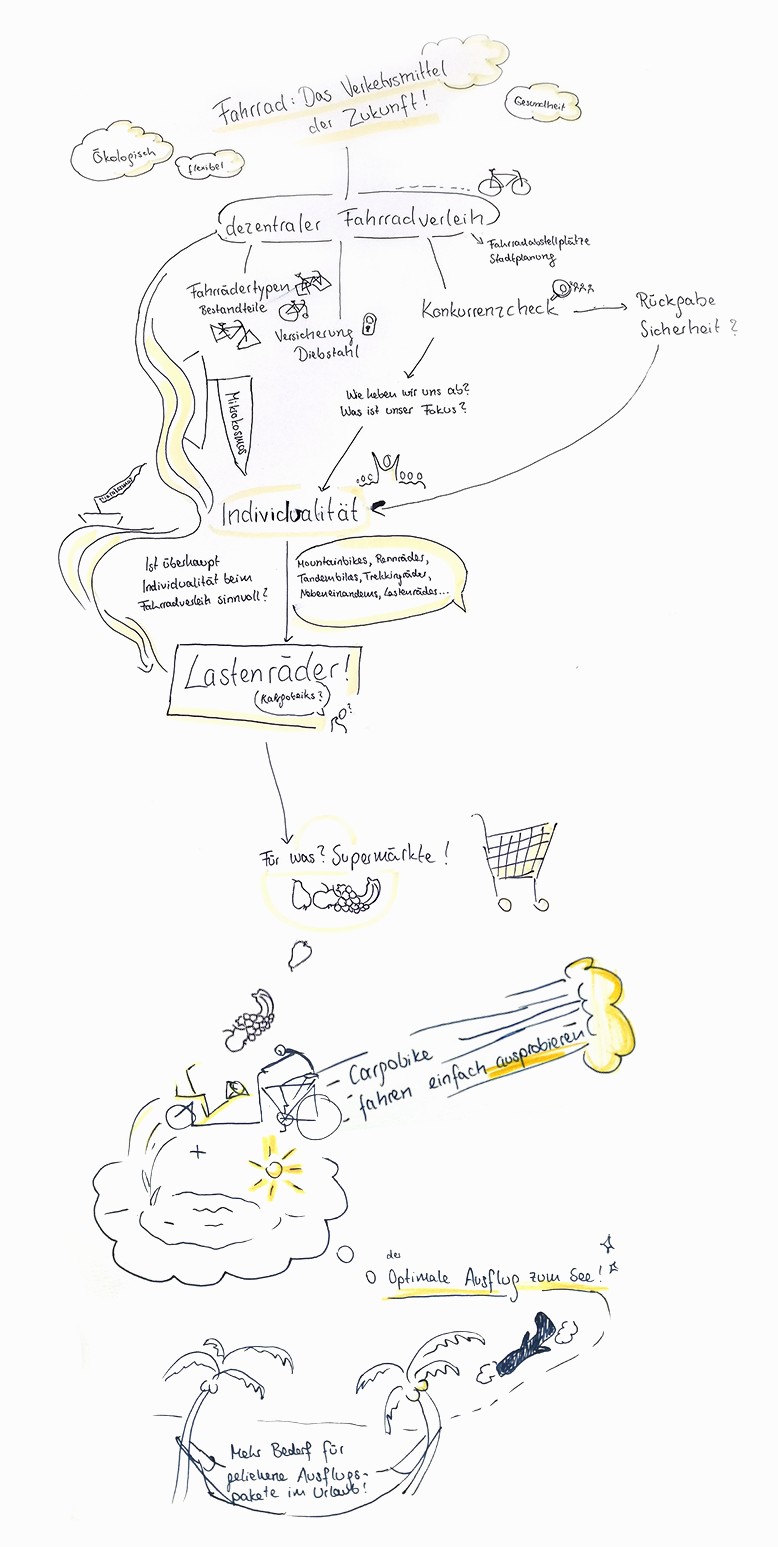 Fahrrad: Das Verkehrsmittel
der Zukunft!
Gesundheit
Ökologisch
flexibel
dezentraler Fahrradverleih
Fahrradabstellplätze
Stadtplanung
Fahrrädertypen
Bestandteile
Versicherung
Diebstahl
Konkurrenzcheck
Rückgabe
Sicherheit?
Wie heben wir uns ab?
Was ist unser Fokus?
Mikrokosmos
Individualität
Ist überhaupt
Individualität beim
Fahrradverleih sinnvoll?
Mountainbikes, Rennräder,
Tandembikes, Trekkingräder,
Nebeneinanders, Lastenräder...
Lastenräder!
Für was? Supermärkte!
Carpobike
fahren einfach ausprobieren
+
der
Optimale Ausflug zum See!
Mehr Bedarf für
geliehene Ausflugs-
pakete im Urlaub!